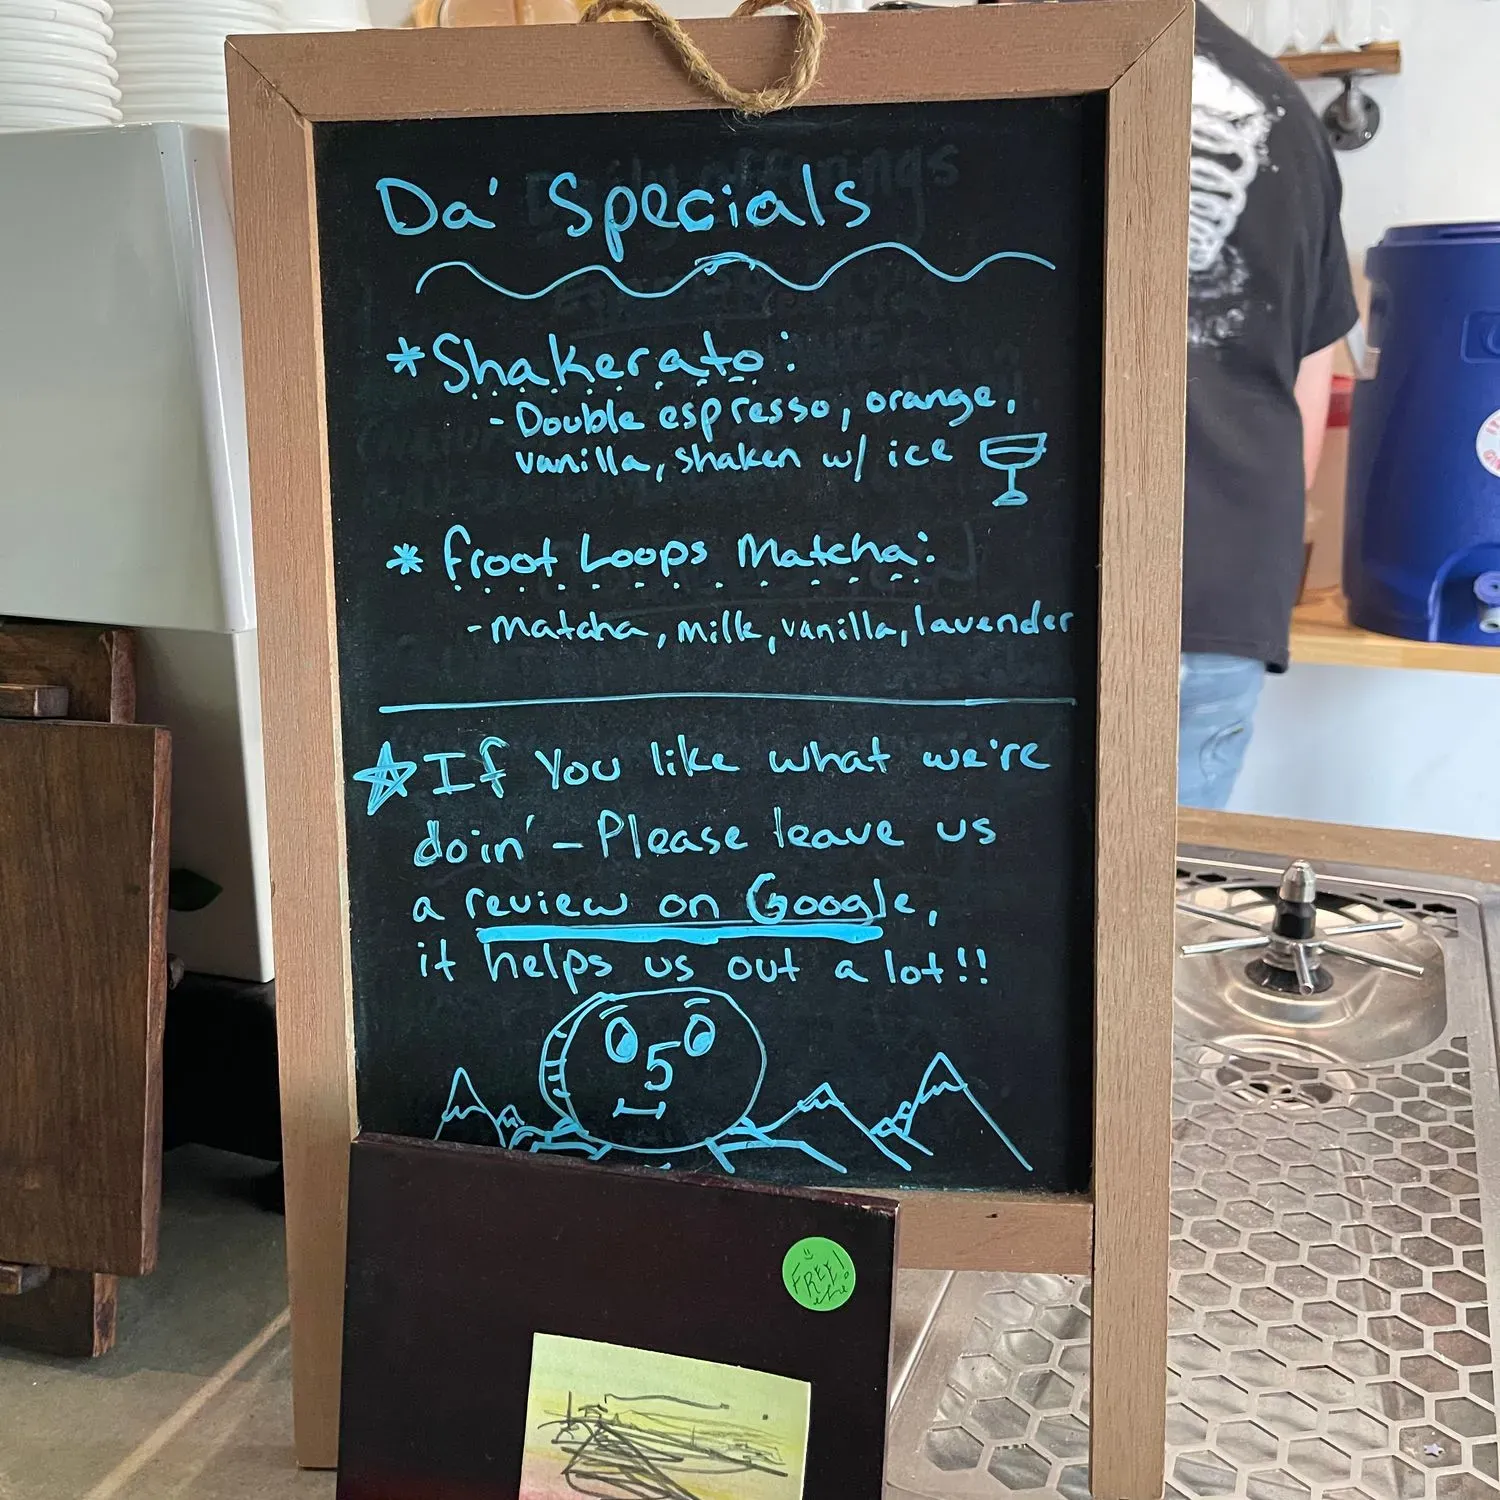 Da' Specials
* Shakerato:
- Double espresso, orange,
vanilla, shaken w/ ice
* Froot Loops Matcha:
- Matcha, milk, vanilla, lavender
If you like what we're
doin' - Please leave us
a review on Google,
it helps us out a lot!!
5
FREE!